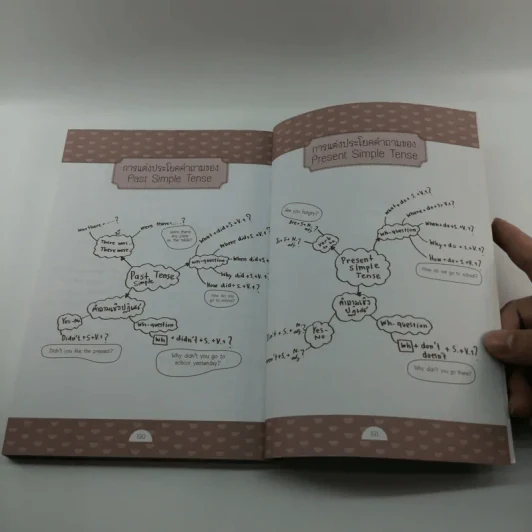 การแต่งประโยคคำถามของ
Past Simple Tense
was there ..... ?
were there ..... ?
There was..
There were..
Were there any pens on the table?
What + did + S. + V.1 ?
Where did + S. + V.1 ?
wh-question
When did + S.
Why did + S. + V.1 ?
How did + S. + V.1 ?
How did you go to school?
Past Tense
simple
คำถามเชิงปฏิเสธ
Yes-No
Wh-question
Didn't + S. + V.1 ?
Didn't you like the present?
Wh + didn't + S. + V.1 ?
Why didn't you go to school yesterday?
การแต่งประโยคคำถามของ
Present Simple Tense
Are you hungry?
What + do + S. + V.1 ?
Where + do + S. + V.1 ?
wh-question
When + do + S. + V.1 ?
Why + do + S. + V.1 ?
How + do + S. + V.1 ?
How do we go to school?
Present
simple
Tense
คำถามเชิง
ปฏิเสธ
Yes-
No
Wh-question
Wh + don't + S. + V.1 ?
doesn't
Why don't you go there?